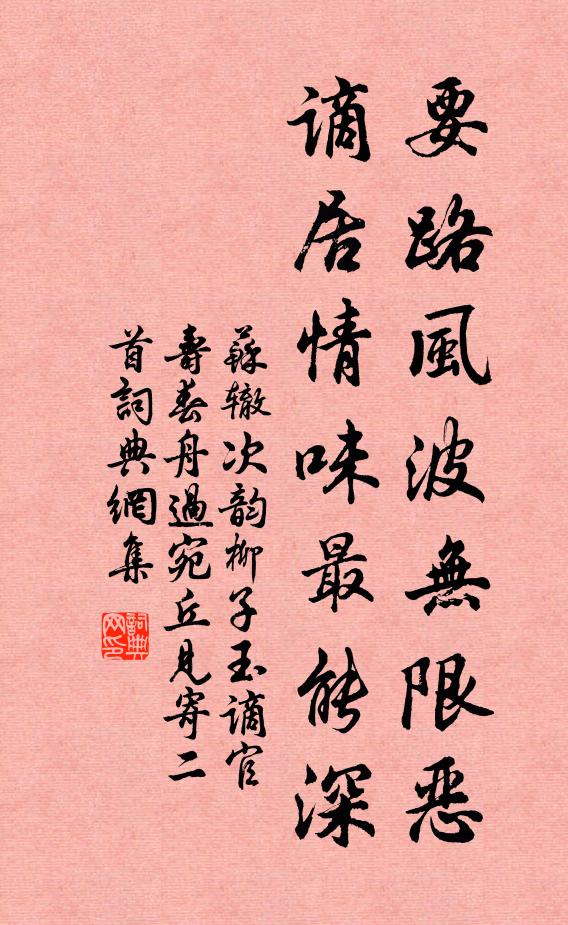 要路風波無限恶
谪居情味最能深
蘇辙次韵柳子玉谪官
壽春舟過宛丘見寄二
首詞典網集
詞典網印